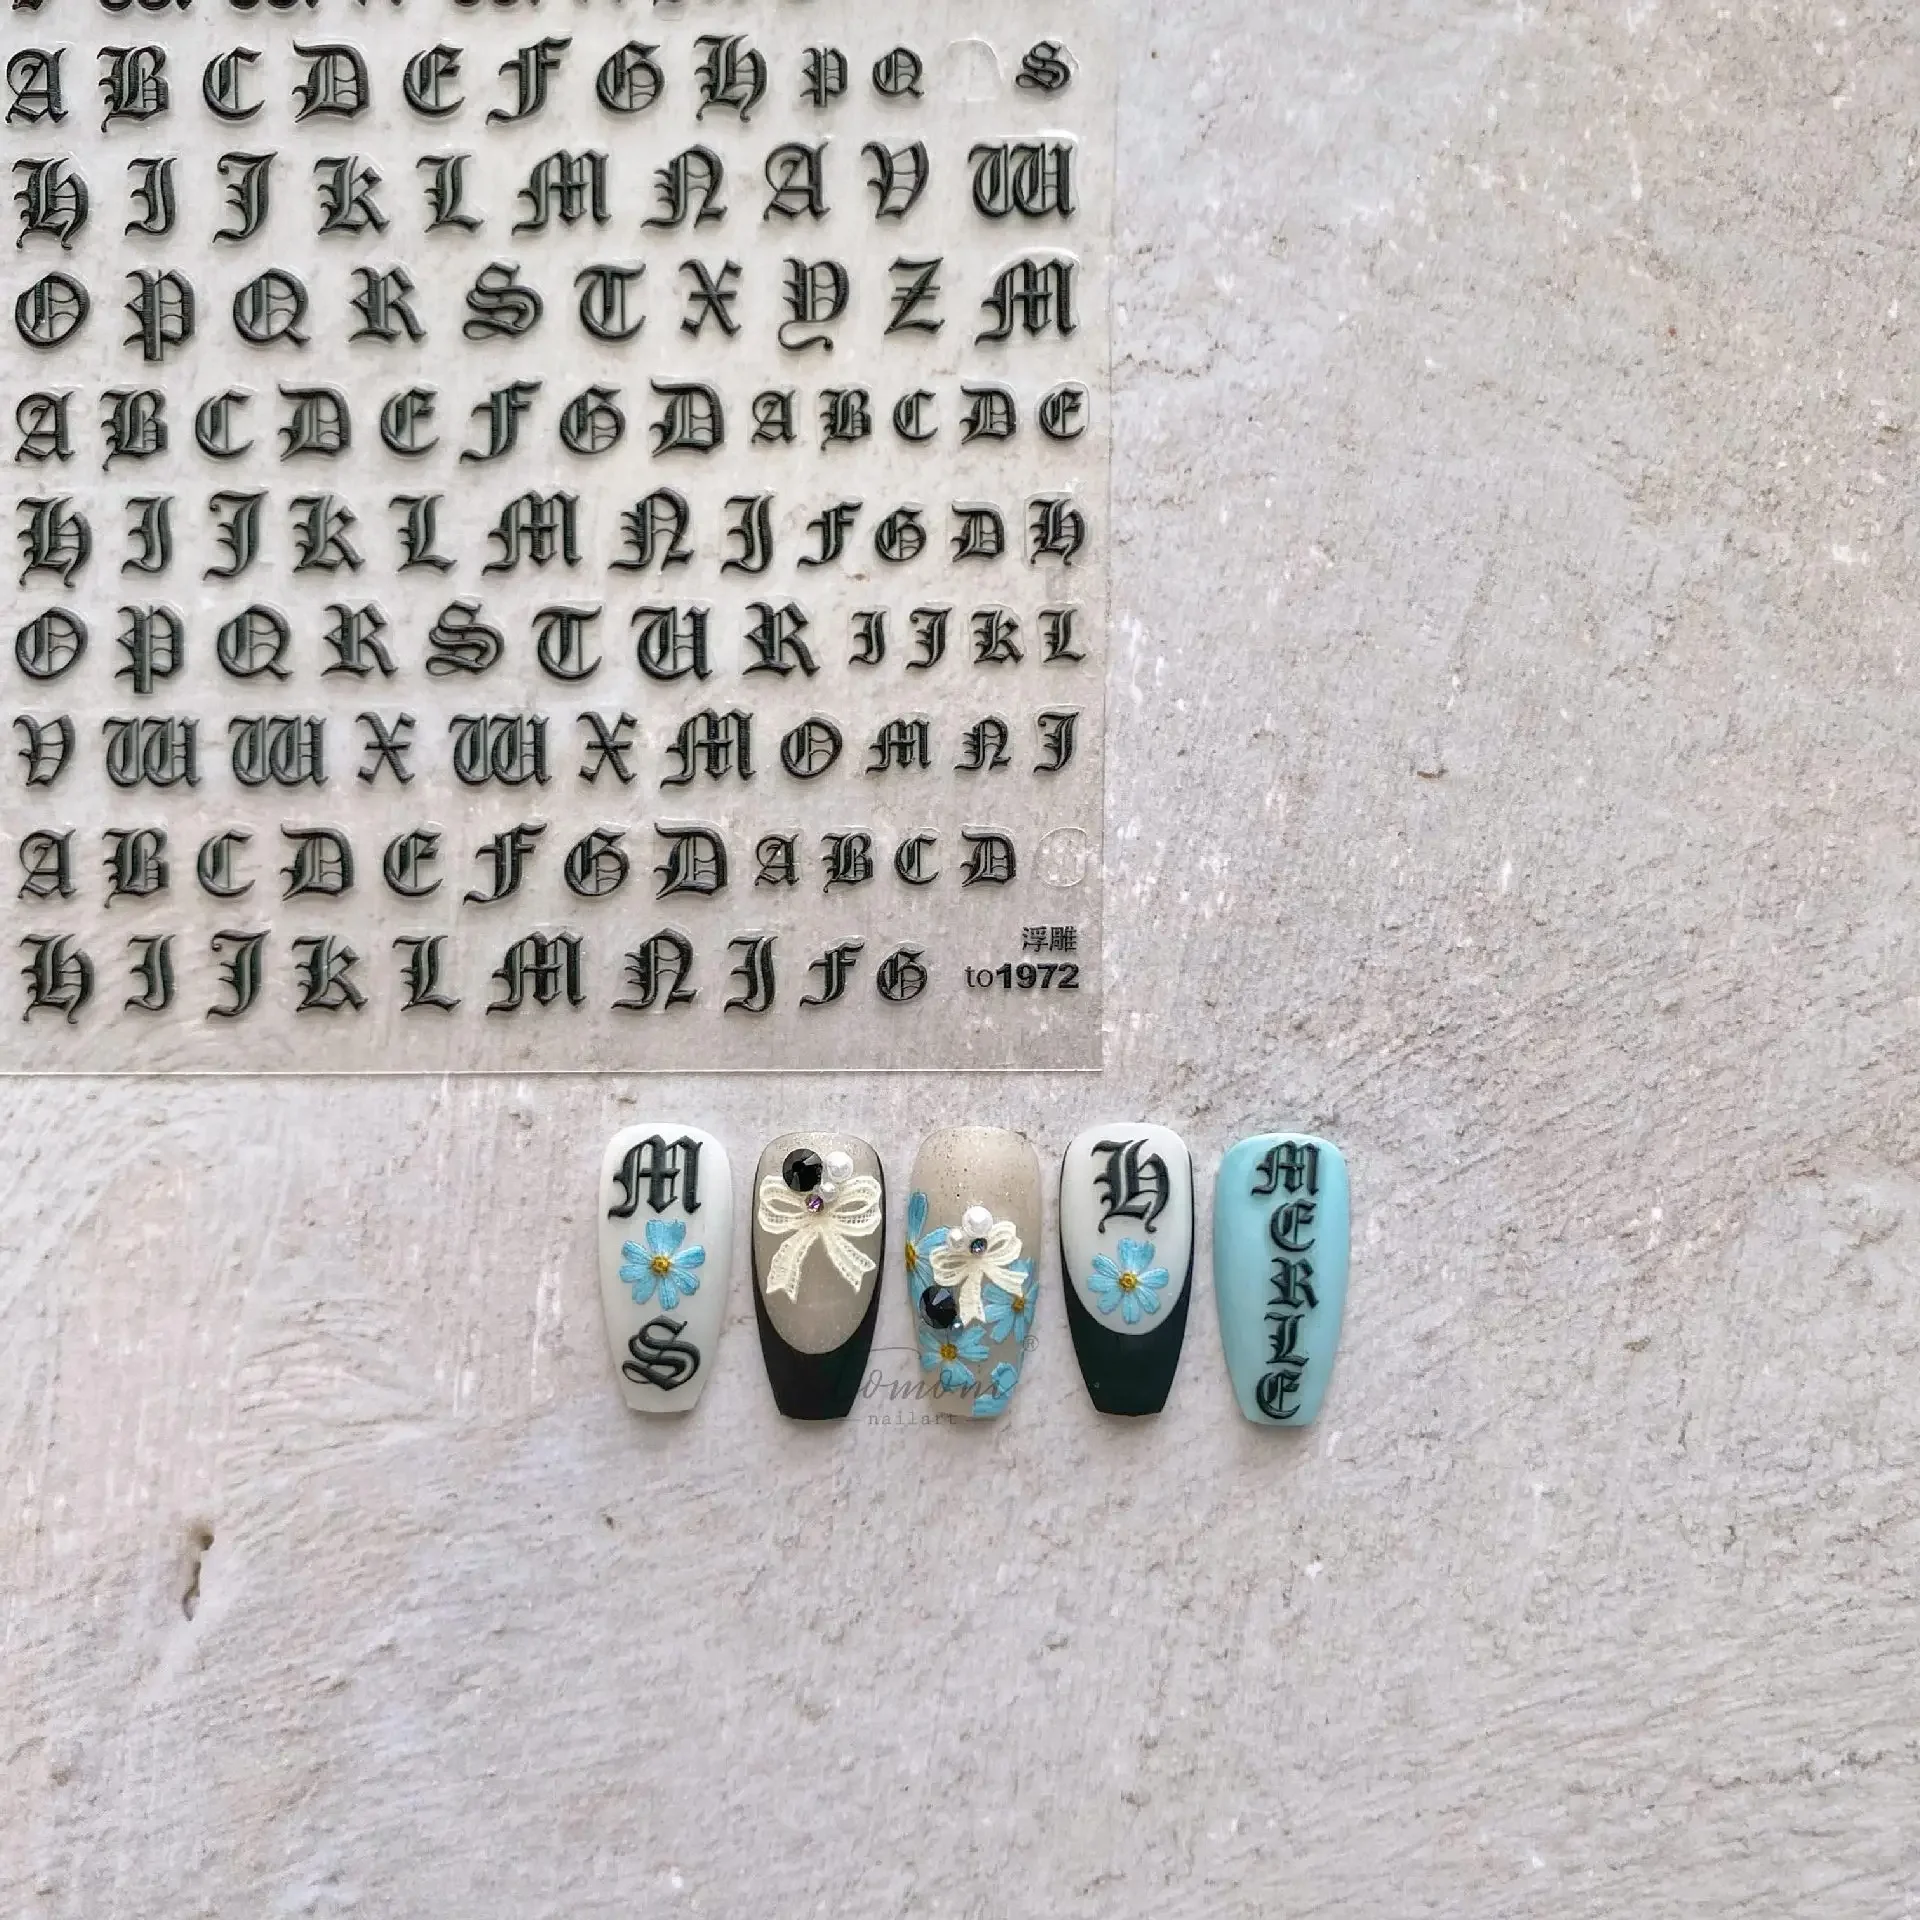 A B C D E F G H P Q S
H I J K L M N A V W
O P Q R S T X Y Z M
A B C D E F G D A B C D E
H I J K L M N I F G D H
O P Q R S T U R I J K L
V W W X W X M O M N I
A B C D E F G D A B C D
H I J K L M N I F G
浮雕
to1972
M
S
H
M
E
R
L
E
nailart